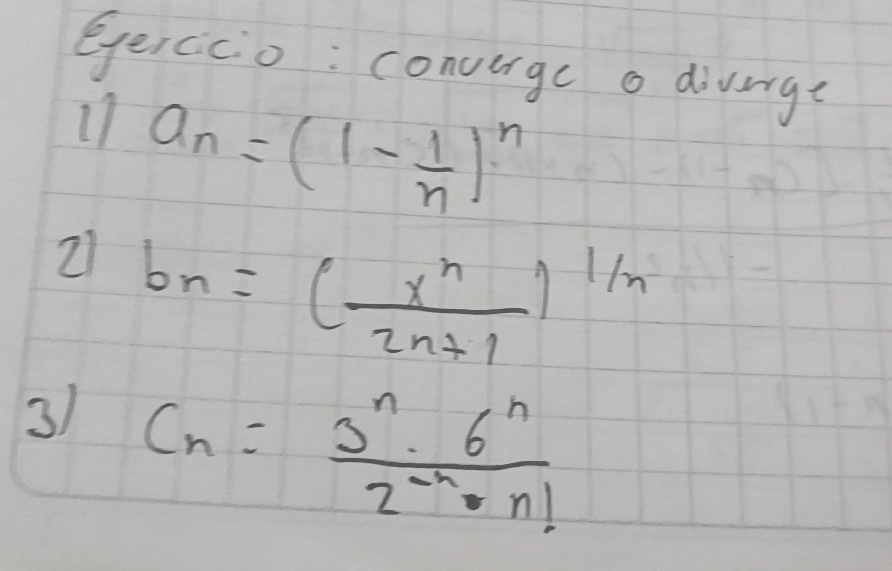 Ejercicio : converge o diverge
1) an = (1 - 1/n)^n
2) bn = (x^n / 2n+1)^1/n
3) Cn = 3^n . 6^n / 2^-n · n!